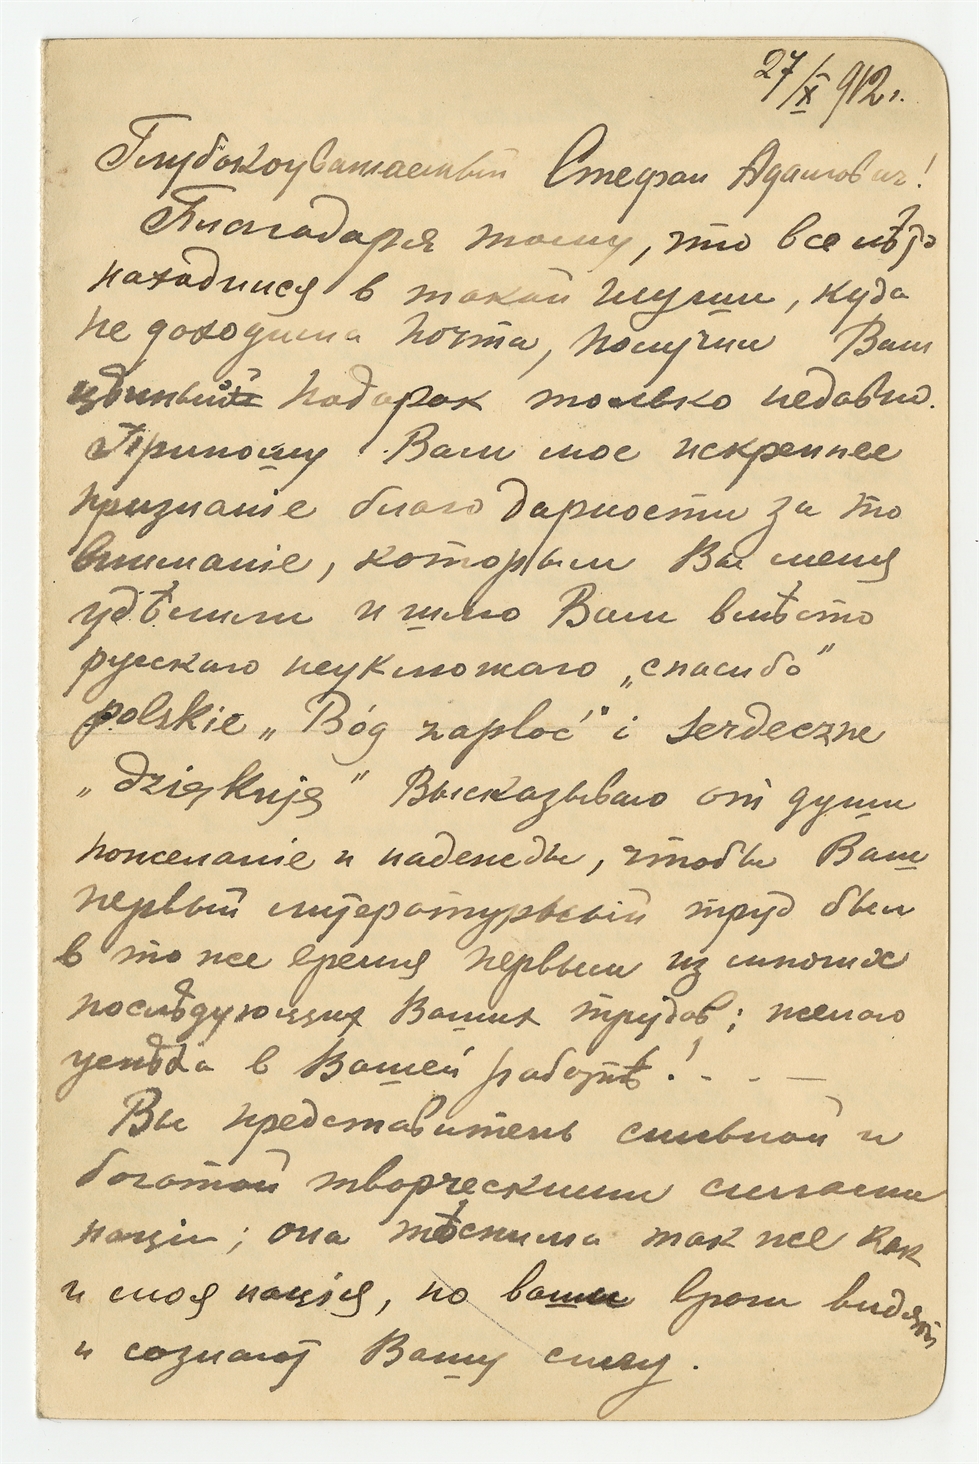 27/X 912 г.
Глубокоуважаемый Стефан Адамович!
Благодаря тому, что все лѣто
находился в такой глуши, куда
не доходила почта, получил Ваш
цѣнный подарок только недавно.
Приношу Вам мое искреннее
признаніе благодарности за то
вниманіе, которым Вы меня
удѣлили и шлю Вам вмѣсто
русскаго неуклюжаго „спасибо”
polskie „Bóg zapłać” i serdeczne
„dziękuję” Высказываю от души
пожеланіе и надежды, чтобы Ваш
первый литературный труд был
в то же время первым из многих
послѣдующих Ваших трудов; желаю
успѣха в Вашей работѣ! - - —
Вы представитель сильной и
богатой творческими силами
націи; она тѣснима так же как
и моя нація, но ваши враги видят
и сознают Вашу силу.